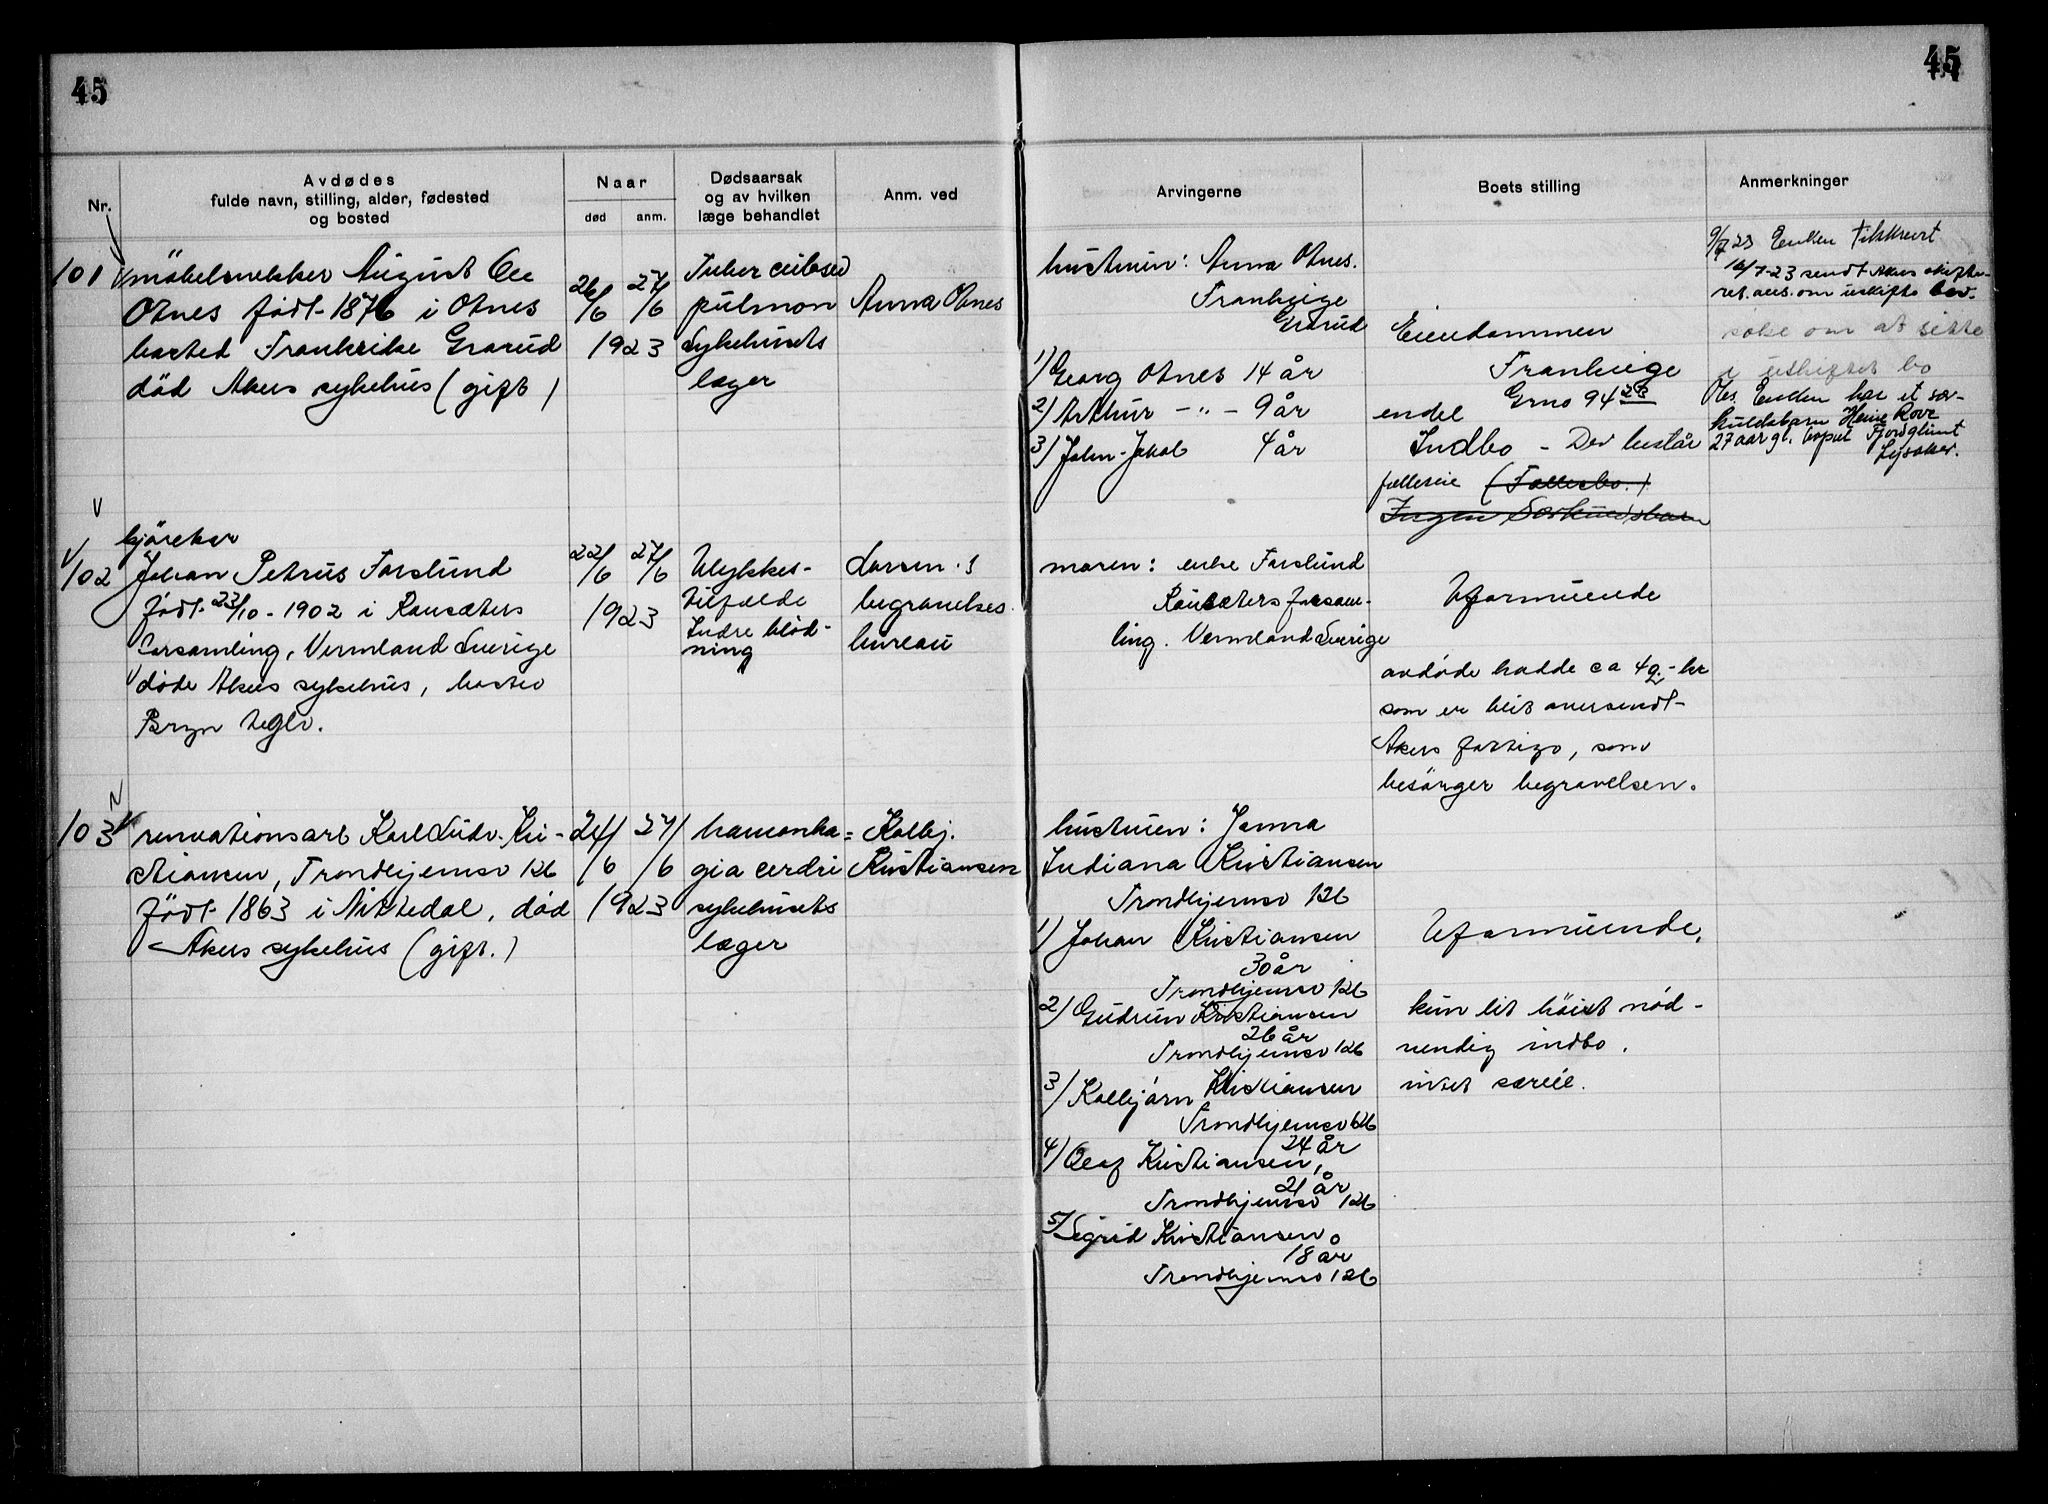 45
45
Nr.
Avdødes
fulde navn, stilling, alder, fødested
og bosted
Naar
død
anm.
Dødsaarsak
og av hvilken
læge behandlet
Anm. ved
Arvingerne
Boets stilling
Anmerkninger
101
möbelsnekker August
Otnes født 1876 i Otnes
bosted Frankrike Grorud
död Akers sykehus (gift)
26/6 27/6
1923
pulmon
Sykehusets
læger
Anna Otnes
hustruen: Anna Otnes.
Grorud
1) Georg Otnes 14 år
2) Arthur - " - 9 år
3) John-Jakob 4 år
Eiendommen
endel
Indbo - Der består
fælleseie (Fællesbo.)
Ingen Særkuldsbarn
9/7 23 Enken tilskrevt
16/7-23 sendt Akers skifte-
søke om at sitte
i uskiftet bo
Obs. Enken har et sær-
kuldsbarn
27 aar gl. bopæl Fjordglimt
Lysaker.
kjörekar
102
Johan Petrus Forslund
født 23/10 - 1902 i Ransäters
forsamling, Vermland Sverige
døde Akers sykehus, bosted
Bryn teglv.
22/6 27/6
1923
Ulykkes-
tilfælde
Indre blöd-
ning
Larsen s
begravelses
bureau
moren: enke Forslund
Ransäters forsam-
ling. Vermland Sverige
Uformuende
avdøde hadde ca 49.- kr
som er blit oversendt
Akers fattigv, som
besörger begravelsen.
103
renovationsarb Karl Ludv. Kri-
stiansen, Trondhjemsv 126
født 1863 i Nittedal, død
Akers sykehus (gift.)
24/6 27/6
1923
gia cerebri
sykehusets
læger
Kolbj.
Kristiansen
hustruen: Janna
Indiana Kristiansen
Trondhjemsv 126
1) Johan Kristiansen
30 år
Trondhjemsv 126
2) Gudrun Kristiansen
26 år
Trondhjemsv 126
3) Kolbjørn Kristiansen
Trondhjemsv 126
24 år
4) Olaf Kristiansen,
21 år
Trondhjemsv 126
5) Sigrid Kristiansen
18 år
Trondhjemsv 126
Uformuende.
kun lit høist nød-
vendig indbo.
intet særeie.